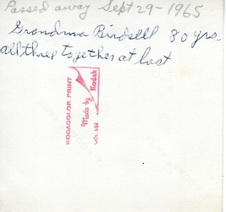 Passed away Sept 29-1965
Grandma 80 yrs.
all three together at last
KODACOLOR PRINT
Made by Kodak